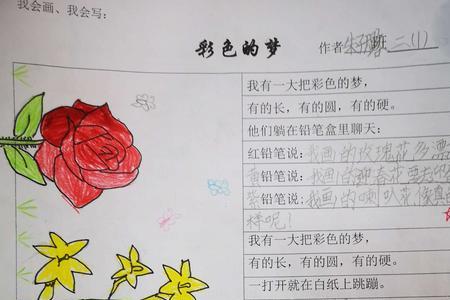 我会画、我会写：
彩色的梦
作者 班 二(1)
我有一大把彩色的梦，
有的长，有的圆，有的硬。
他们躺在铅笔盒里聊天：
红铅笔说：我画的玫瑰花多漂
黄铅笔说：我画的迎春花要去
紫铅笔说：我画的喇叭花像真
样呢！
我有一大把彩色的梦，
有的长，有的圆，有的硬。
一打开就在白纸上跳蹦。